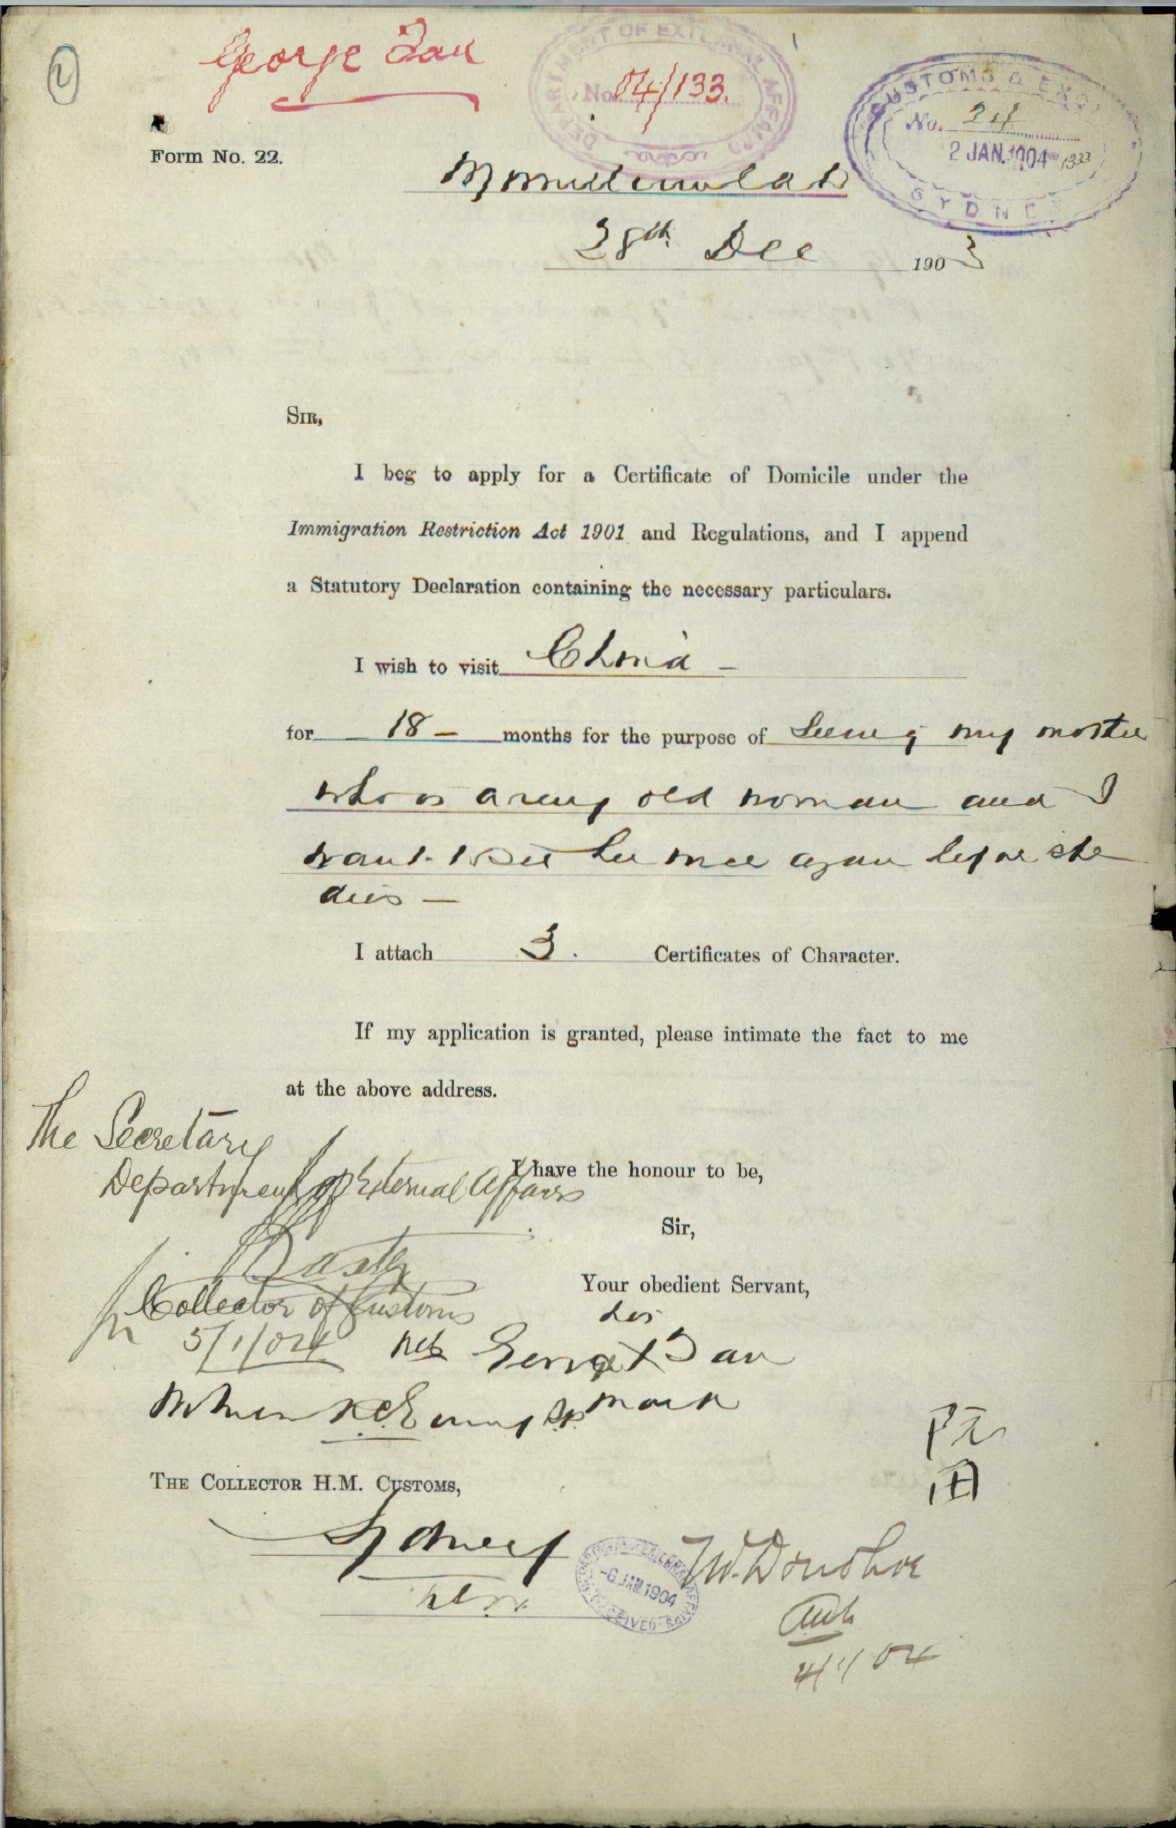 George Tan
DEPARTMENT OF EXTERNAL AFFAIRS
No. 04/133.
CUSTOMS & EXCISE
No. 24
2 JAN. 1904
SYDNEY
Form No. 22.
28th Dec 1903
SIR,
I beg to apply for a Certificate of Domicile under the
Immigration Restriction Act 1901 and Regulations, and I append
a Statutory Declaration containing the necessary particulars.
I wish to visit China -
for 18 - months for the purpose of Seeing my mother
who is a very old woman and I
want to see her once again before she
dies —
I attach 3. Certificates of Character.
If my application is granted, please intimate the fact to me
at the above address.
The Secretary
Department of External Affairs
I have the honour to be,
Sir,
Your obedient Servant,
Baxter
for Collector of Customs
5/1/04
his
George X Tan
mark
Witness
THE COLLECTOR H.M. CUSTOMS,
Sydney
N.S.W.
-6 JAN. 1904
RECEIVED
W. Donohoe
4/1/04